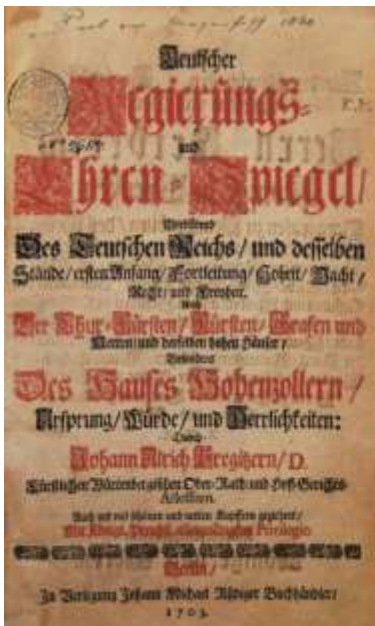 Teutscher
Regierungs-
und
Ehren-Spiegel/
Vorbildend
Des Teutschen Reichs/ und desselben
Stände/ ersten Anfang/ Fortleitung/ Hoheit/ Macht/
Recht/ und Freyheit.
Auch
Der Chur-Fürsten/ Fürsten/ Grafen und
Herren/ und derselben hohen Häuser/
Besonders
Des Hauses Hohenzollern/
Ursprung/ Würde/ und Herrlichkeiten:
Durch
Johann Ulrich Pregitzern/ D.
Fürstlicher Würtenbergischen Ober-Rath und Hoff-Gerichts-
Assessorn.
Auch mit viel schönen und netten Kupffern gezieret/
Mit Königl. Preußl. Privilegio
Berlin/
In Verlegung Johann Michael Rüdiger Buchhändler/
1703.